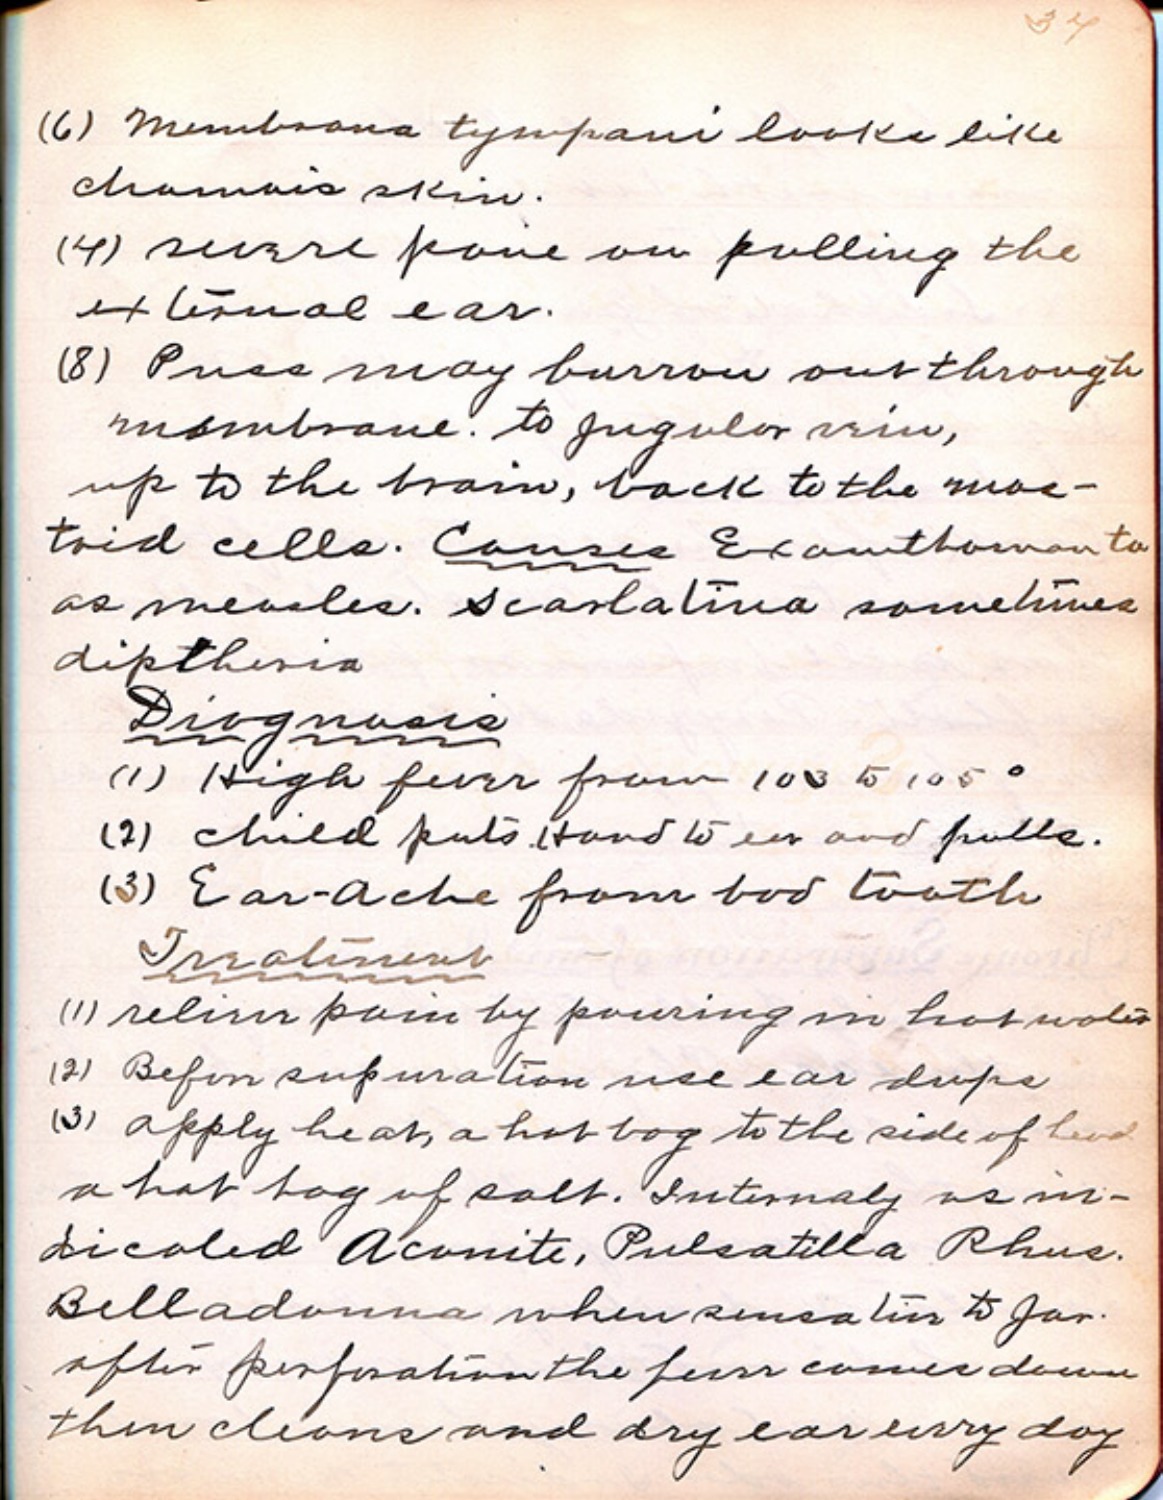 34
(6) Membrana tympani looks like
chamois skin.
(4) severe paine on pulling the
external ear.
(8) Puss may burrow out through
membrane. to Jugular vein,
up to the brain, back to the mas-
toid cells. Causes Exanthomanta
as measles. Scarlatina sometimes
diptheria
Diagnosis
(1) High fever from 103 to 105°
(2) child puts Hand to ear and pulls.
(3) Ear-Ache from bad tooth
Treatment
(1) relieve pain by pouring in hot water
(2) Before supuration use ear drops
(3) apply heat, a hot bag to the side of head
a hot bag of salt. Internaly as in-
dicated Aconite, Pulsatilla Rhus.
Belladonna when sensative to Jar.
after perforation the fever comes down
then cleans and dry ear every day